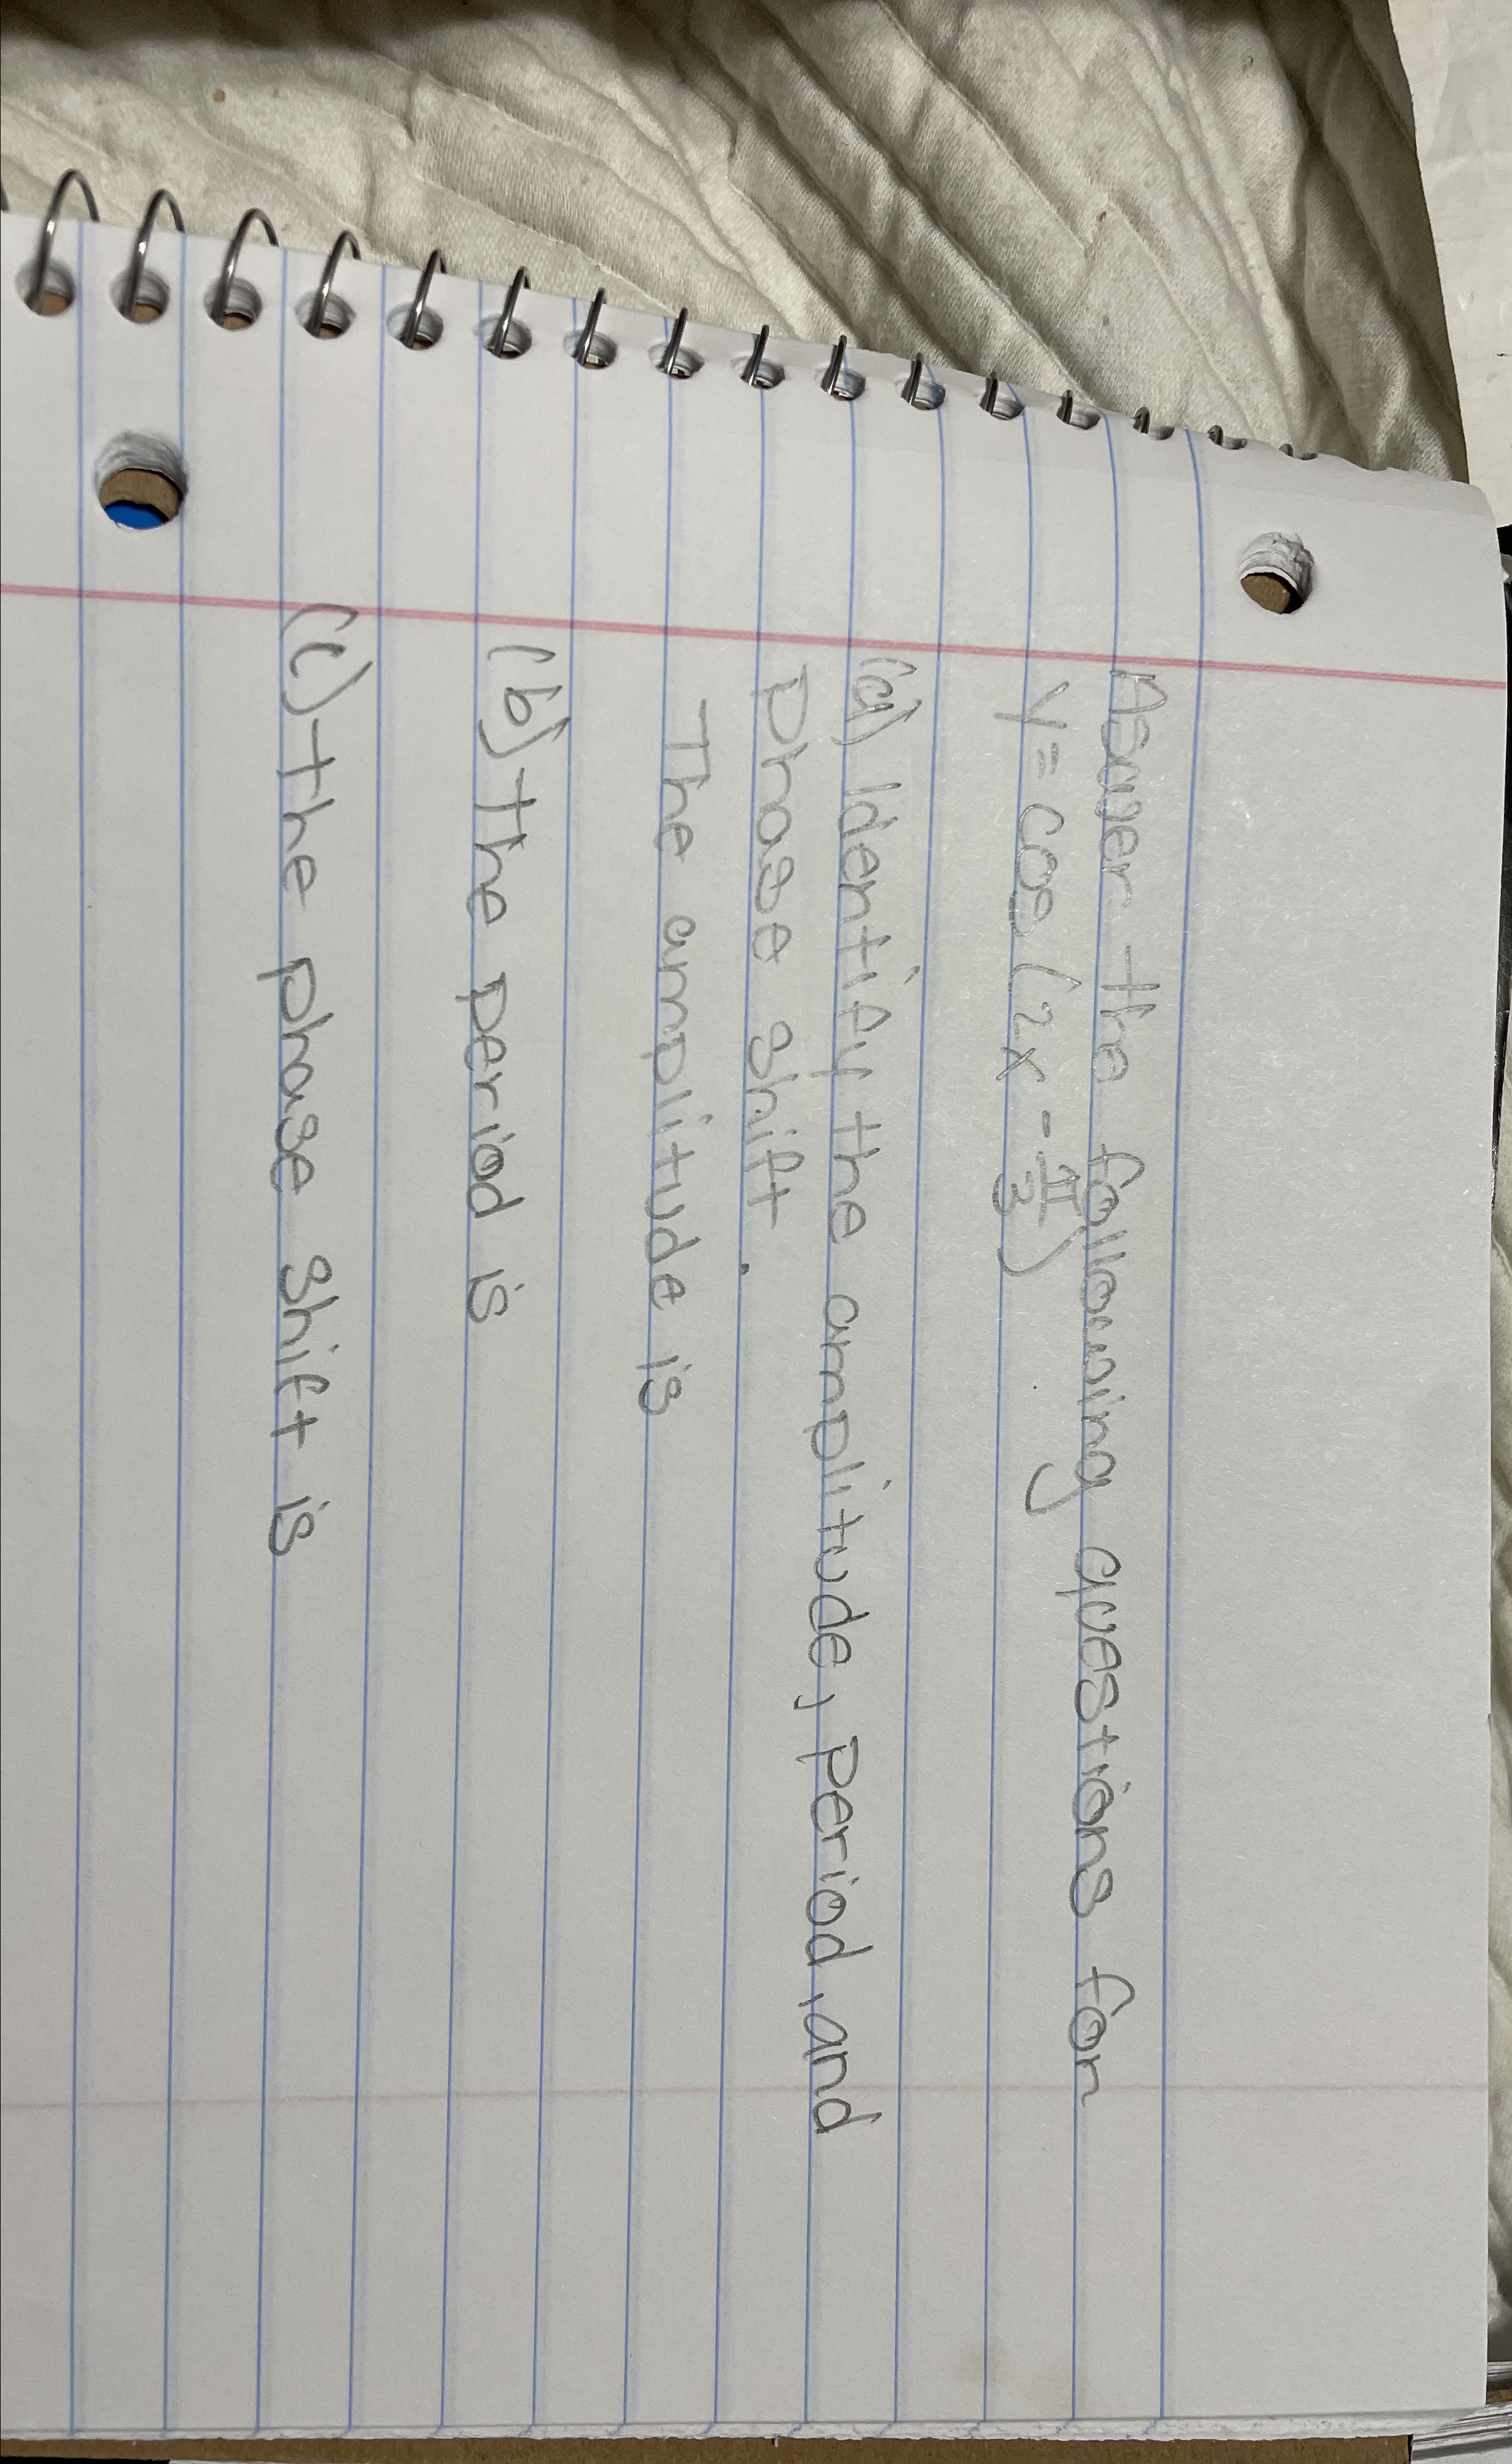 Aswer the following questions for
y = cos (2x - π/3)
(a) Identify the amplitude, period, and
phase shift.
The amplitude is
(b) the period is
(c) the phase shift is